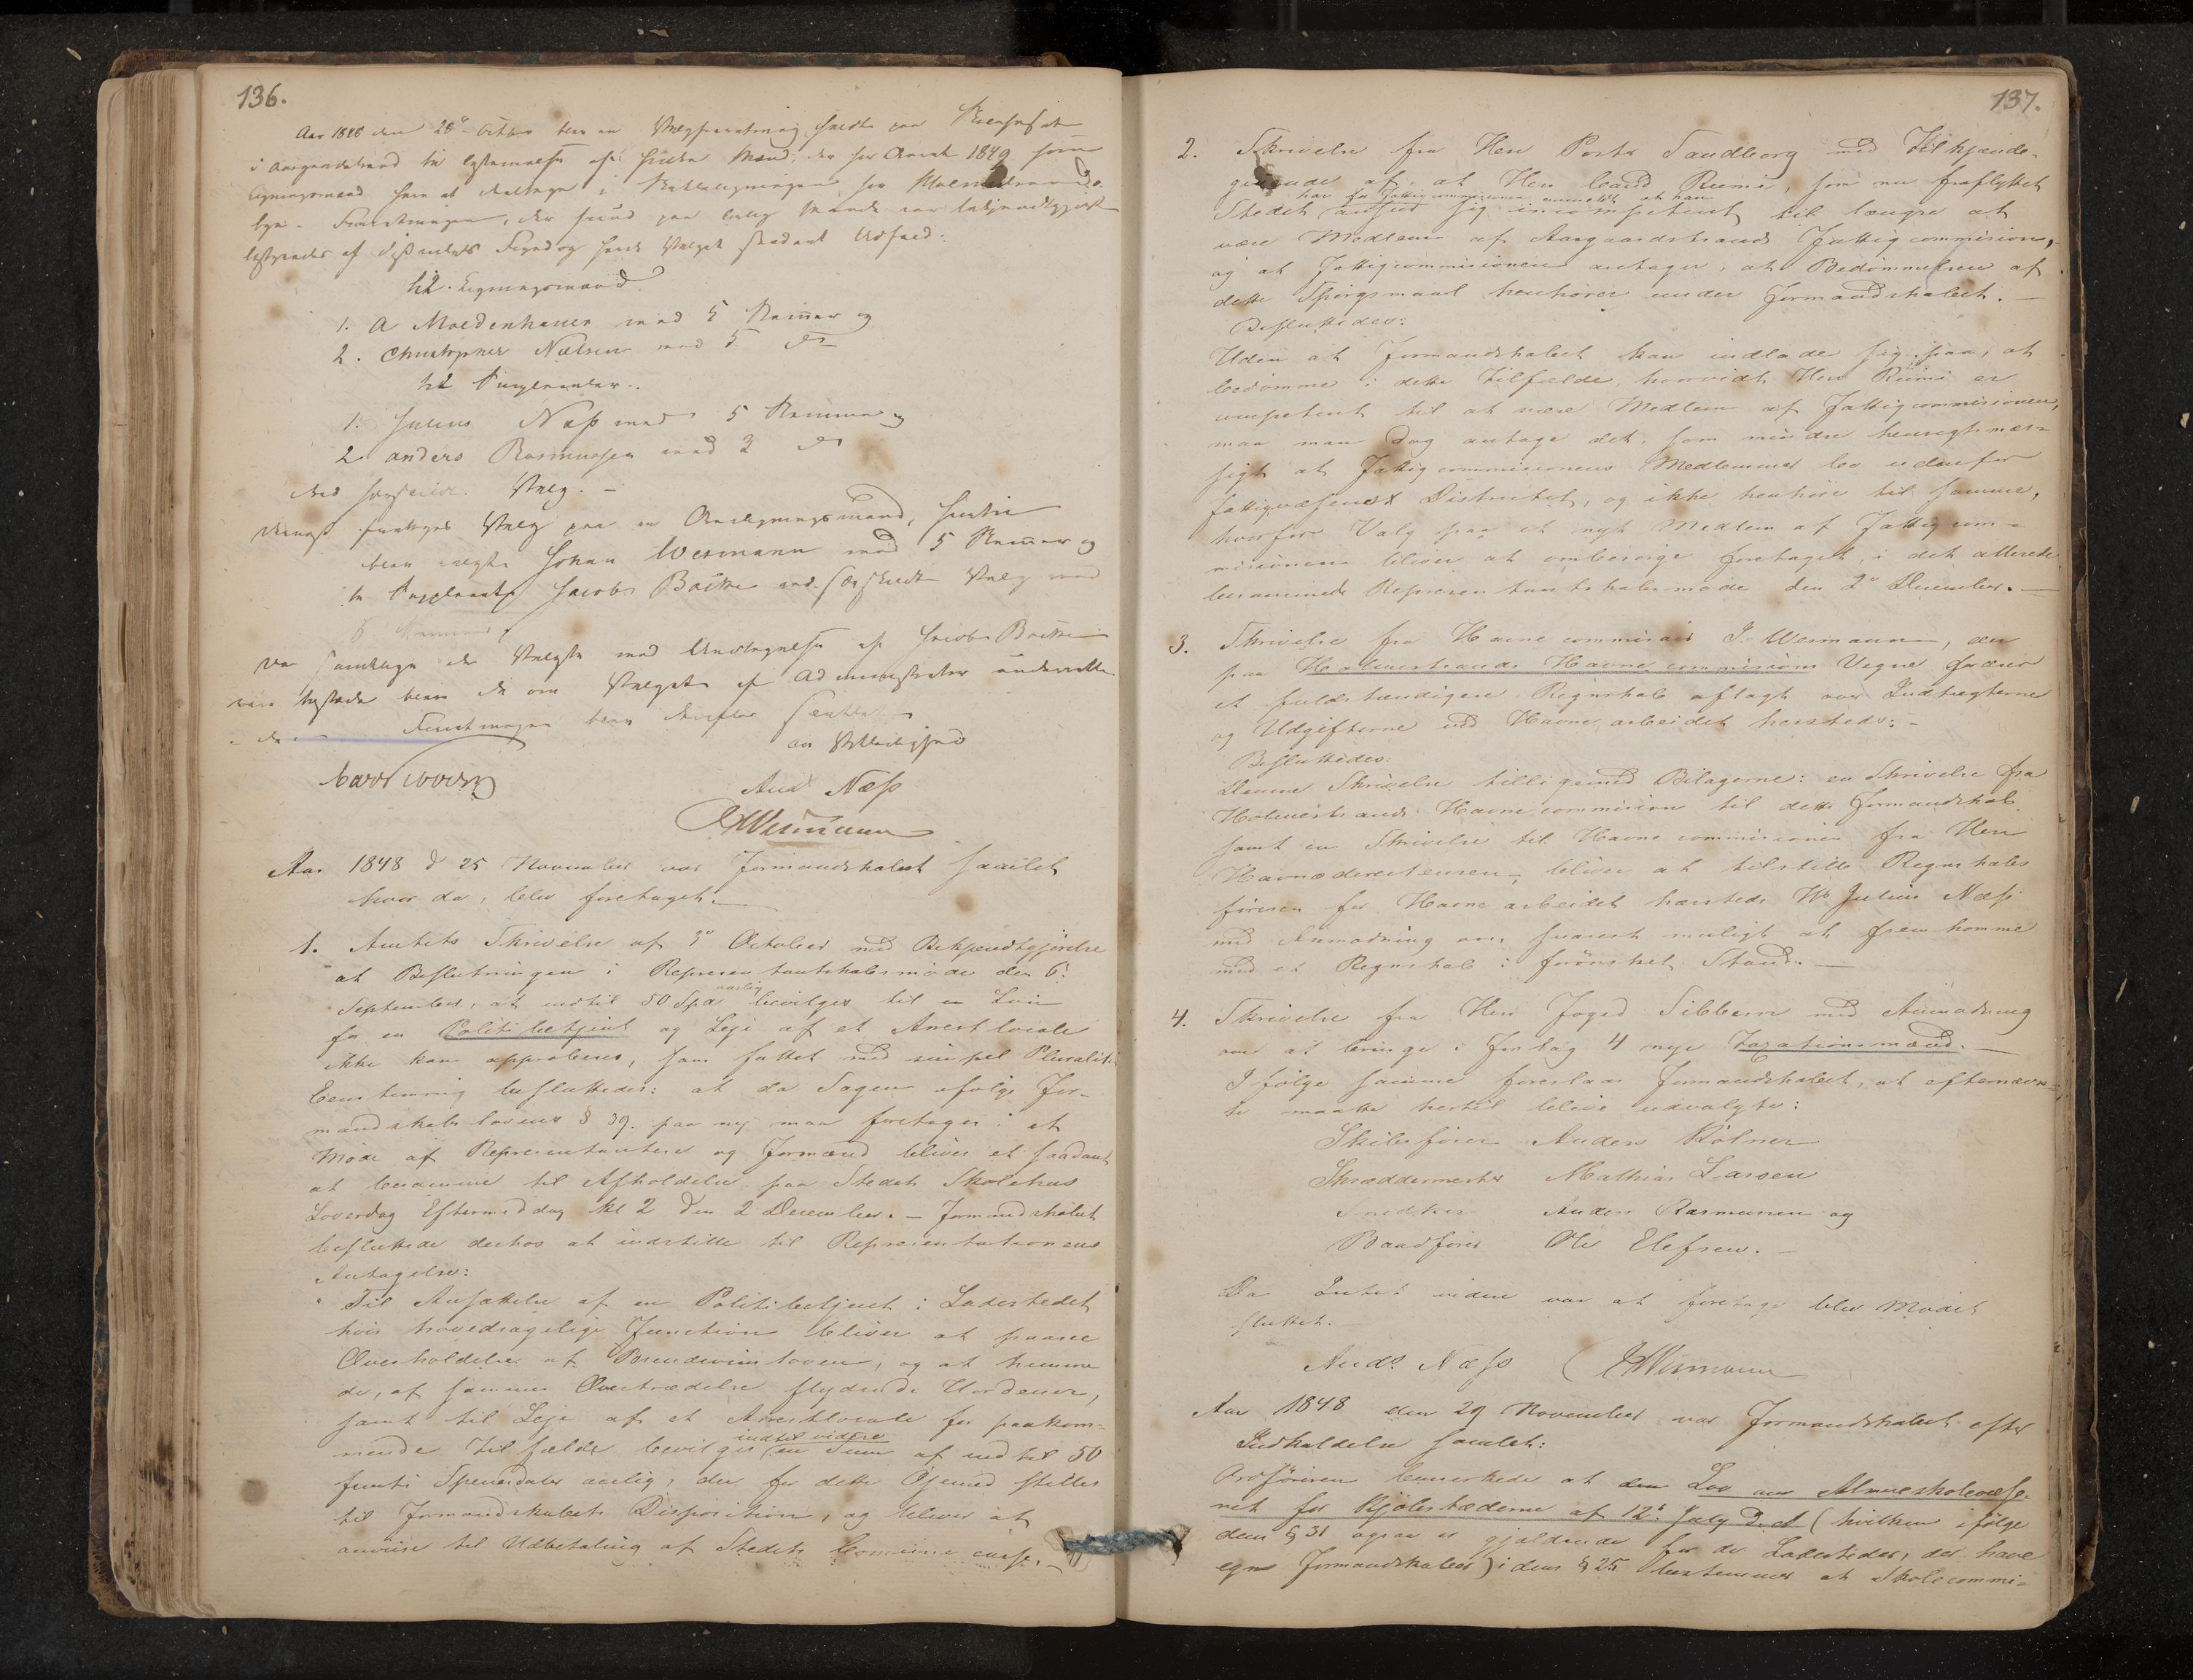 136.
Aar 1848 den 28de October blev en Valgforretning holdt paa
i Aasgaardstrand til af Mænd, der for Aaret 1849 som
Ligningsmænd have at deltage i Skatteligningen for Holmestrands
bye. Forretningen, der paa lovlig Maade var bekjendtgjort
bestyredes af Foged og havde Valget saadant Udfald:
til Ligningsmænd
1. A Moldenhauer med 5 Stemmer og
2. Christopher Nielsen med 5 do
til Suppleanter.
1. Julius Næss med 5 Stemmer og
2 Anders Rasmussen med 3 do
Valg. —
foretoges Valg paa en Ligningsmand, hvortil
blev valgt Johan Wermann med 5 Stemmer og
til Suppleant Jacob Bakke ved Valg med
5 Stemmer
Da samtlige de Valgte med Undtagelse af Jacob Bakke
vare tilstede blev de om Valget af Administrator underrettet
Forretningen blev derefter sluttet
Næss
JWermann
Aar 1848 d 25 November var Formandskabet samlet
hvor da, blev foretaget.
1. Amtets Skrivelse af 3de October med Bekjendtgjörelse
at Beslutningen i Representantskabsmöde den 6te
September, at indtil 50 Spd aarlig bevilges til en Lön
for en Politibetjent og Leje af et Arrestlocale
ikke kan approberes, som fattet med simpel Pluralitet
Eenstemmig besluttedes: at da Sagen ifölge For-
mandskabslovens § 39. paa ny maa foretages i et
Möde af Representantere og Formænd bliver et saadant
at beramme til Afholdelse paa Stedets Skolehus
Loverdag Eftermiddag Kl 2 den 2 December. — Formandskabet
besluttede derhos at indstille til Representationens
Antagelse:
Til Ansættelse af en Politibetjent i Ladestedet
hvis hovedsagelige Function bliver at paasee
Overholdelse af Brændeviinsloven, og at hemme
de, af sammes Overtrædelse flydende Uordener,
samt til Leje af et Arrestlocale for paakom-
mende Tilfælde bevilges indtil videre en Sum af indtil 50
femti Speciedaler aarlig, der for dette Öjemed stilles
til Formandskabets Disposition, og bliver at
anviise til Udbetaling af Stedets Communecasse. —
137.
2. Skrivelse fra Herr Sandberg med Tilkjende-
givende af, at Herr Cand Riemi, som nu fraflyttet
Stedet har for Fattigcommissionen anmeldt at han anseer sig incompetent til længre at
være Medlem af Aasgaardstrands Fattigcommission,
og at Fattigcommissionen antager, at Bedömmelsen af
dette Spörgsmaal henhörer under Formandskabet. —
Besluttedes:
Uden at Formandskabet kan indlade sig paa, at
bedömme i dette Tilfælde, hvorvidt Herr Riemi er
competent til at være Medlem af Fattigcommissionen,
maa man dog antage det, som mindre hensigtsmæs-
sigt at Fattigcommissionens Medlemmer bo udenfor
Fattigvæsenets Distrikt, og ikke henhöre til samme,
hvorfor Valg paa et nyt Medlem af Fattigcom-
missionen bliver at ombesörge foretaget, i det allerede
berammede Representantskabsmöde den 2de December. —
3. Skrivelse fra Havnecommissair J. Wermann, der
paa Holmestrands Havnecommissions Vegne
et fuldstændigere Regnskab aflagt over Indtægterne
og Udgifterne ved Havnearbeidet hersteds: —
Besluttedes:
Denne Skrivelse tilligemed Bilagerne: en Skrivelse fra
Holmestrands Havnecommission til dette Formandskab
samt en Skrivelse til Havnecommissionen fra Herr
Havnedirecteuren, bliver at tilstille Regnskabs
föreren for Havnearbeidet hersteds Hr Julius Næss
med Anmodning om, snarest muligt at fremkomme
med et Regnskab i forönsket Stand. —
4. Skrivelse fra Herr Foged Sibbern med Anmodning
om at bringe i Forslag 4 nye Taxationsmænd. —
I fölge samme foreslaar Formandskabet, at efternævn-
te maatte hertil blive udvalgte:
Skibsförer Anders
Skræddermester Mathias Larsen
Snedker Anders Rasmussen og
Baadförer Ole Elefsen. —
Da Intet videre var at foretage blev Mödet
sluttet. —
Ands Næss JWermann
Aar 1848 den 29 November var Formandskabet efter
Indkaldelse samlet:
Ordföreren bemærkede at den Lov om Almueskolevæse-
net for Kjöbstæderne af 12te July d. A (hvilken ifölge
dens § 31 ogsaa er gjældende for de Ladesteder, der have
egne Formandskaber) i dens § 25 bestemmer at Skolecommi-